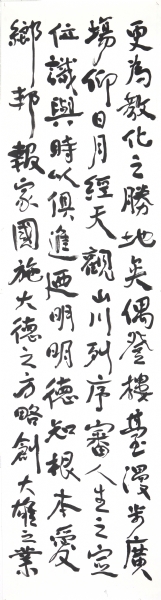 更為教化之勝地矣偶登樓臺漫步廣
場仰日月經天觀山川列序審人生之定
位識與時以俱進迺明明德知根本愛
鄉邦報家國施大德之方略創大雄之業